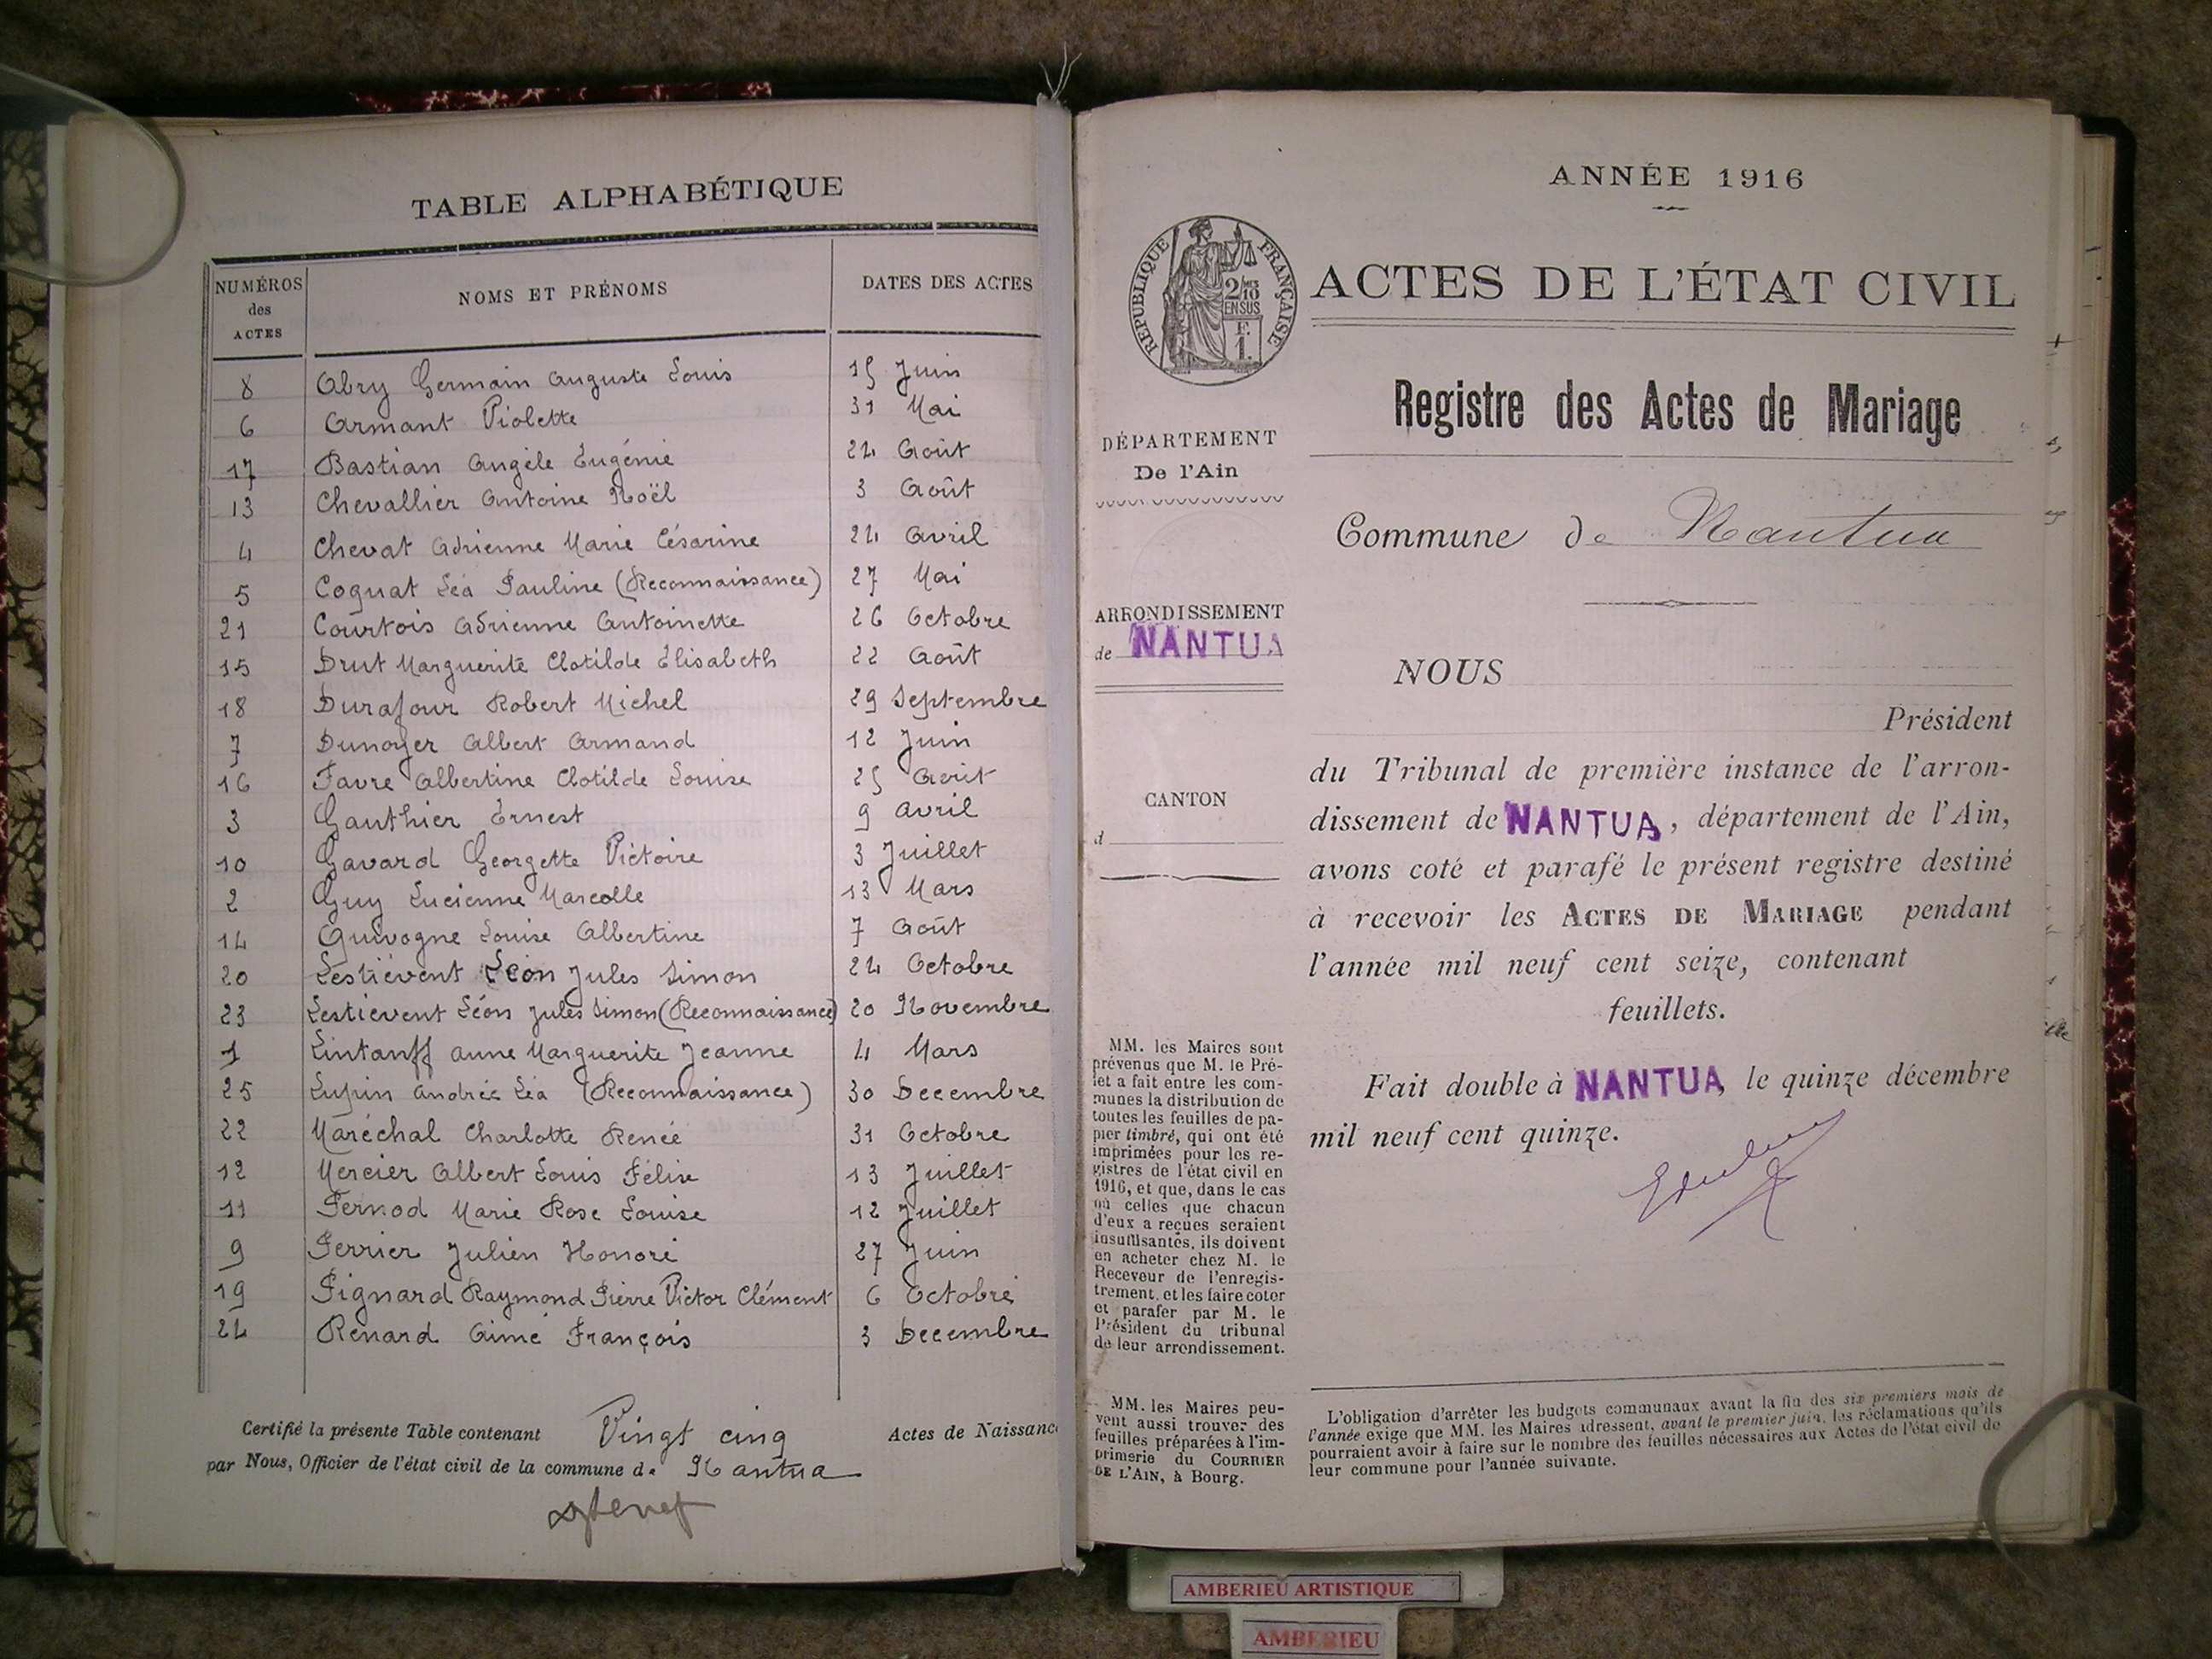 TABLE ALPHABÉTIQUE
NUMÉROS des ACTES NOMS ET PRÉNOMS DATES DES ACTES
8 Abry Germain Auguste Louis 15 Juin
6 Armant Violette 31 Mai
17 Bastian Angèle Eugénie 24 Août
13 Chevallier Antoine Noël 3 Août
4 Chevat Adrienne Marie Césarine 24 Avril
5 Coquat Léa Pauline (Reconnaissance) 27 Mai
21 Courtois Adrienne Antoinette 26 Octobre
15 Drut Marguerite Clotilde Elisabeth 22 Août
18 Durafour Robert Michel 29 Septembre
7 Dunoyer Albert Armand 12 Juin
16 Favre Albertine Clotilde Louise 25 Août
3 Gauthier Ernest 9 Avril
10 Gavard Georgette Victoire 3 Juillet
2 Guy Lucienne Marcelle 13 Mars
14 Guivogne Louise Albertine 7 Août
20 Lestiévent Léon Jules Simon 24 Octobre
23 Lestiévent Léon Jules Simon (Reconnaissance) 20 Novembre
1 Lintanff Anne Marguerite Jeanne 4 Mars
25 Lupin Andrée Léa (Reconnaissance) 30 Decembre
22 Maréchal Charlotte Renée 31 Octobre
12 Mercier Albert Louis Félix 13 Juillet
11 Pernod Marie Rose Louise 12 Juillet
9 Perrier Julien Honoré 27 Juin
19 Pignard Raymond Pierre Victor Clément 6 Octobre
24 Renard Aimé François 3 Decembre
Certifié la présente Table contenant Vingt cinq Actes de Naissanc
par Nous, Officier de l'état civil de la commune de Nantua
ANNÉE 1916
RÉPUBLIQUE FRANÇAISE
2/10 EN SUS
F. 1.
ACTES DE L'ÉTAT CIVIL
Registre des Actes de Mariage
DÉPARTEMENT
De l'Ain
Commune de Nantua
ARRONDISSEMENT
de NANTUA
CANTON
d
NOUS
Président
du Tribunal de première instance de l'arron-
dissement de NANTUA, département de l'Ain,
avons coté et parafé le présent registre destiné
à recevoir les ACTES DE MARIAGE pendant
l'année mil neuf cent seize, contenant
feuillets.
Fait double à NANTUA, le quinze décembre
mil neuf cent quinze.
MM. les Maires sont
prévenus que M. le Pré-
fet a fait entre les com-
munes la distribution de
toutes les feuilles de pa-
pier timbré, qui ont été
imprimées pour les re-
gistres de l'état civil en
1916, et que, dans le cas
où celles que chacun
d'eux a reçues seraient
insuffisantes, ils doivent
en acheter chez M. le
Receveur de l'enregis-
trement, et les faire coter
et parafer par M. le
Président du tribunal
de leur arrondissement.
MM. les Maires peu-
vent aussi trouver des
feuilles préparées à l'im-
primerie du COURRIER
DE L'AIN, à Bourg.
L'obligation d'arrêter les budgets communaux avant la fin des six premiers mois de
l'année exige que MM. les Maires adressent, avant le premier juin, les réclamations qu'ils
pourraient avoir à faire sur le nombre des feuilles nécessaires aux Actes de l'état civil de
leur commune pour l'année suivante.
AMBERIEU ARTISTIQUE
AMBERIEU